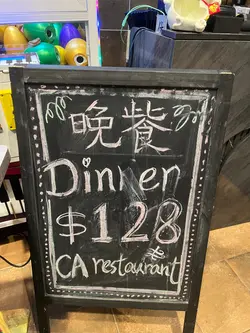 晚餐
Dinner
$128
CA restaurant